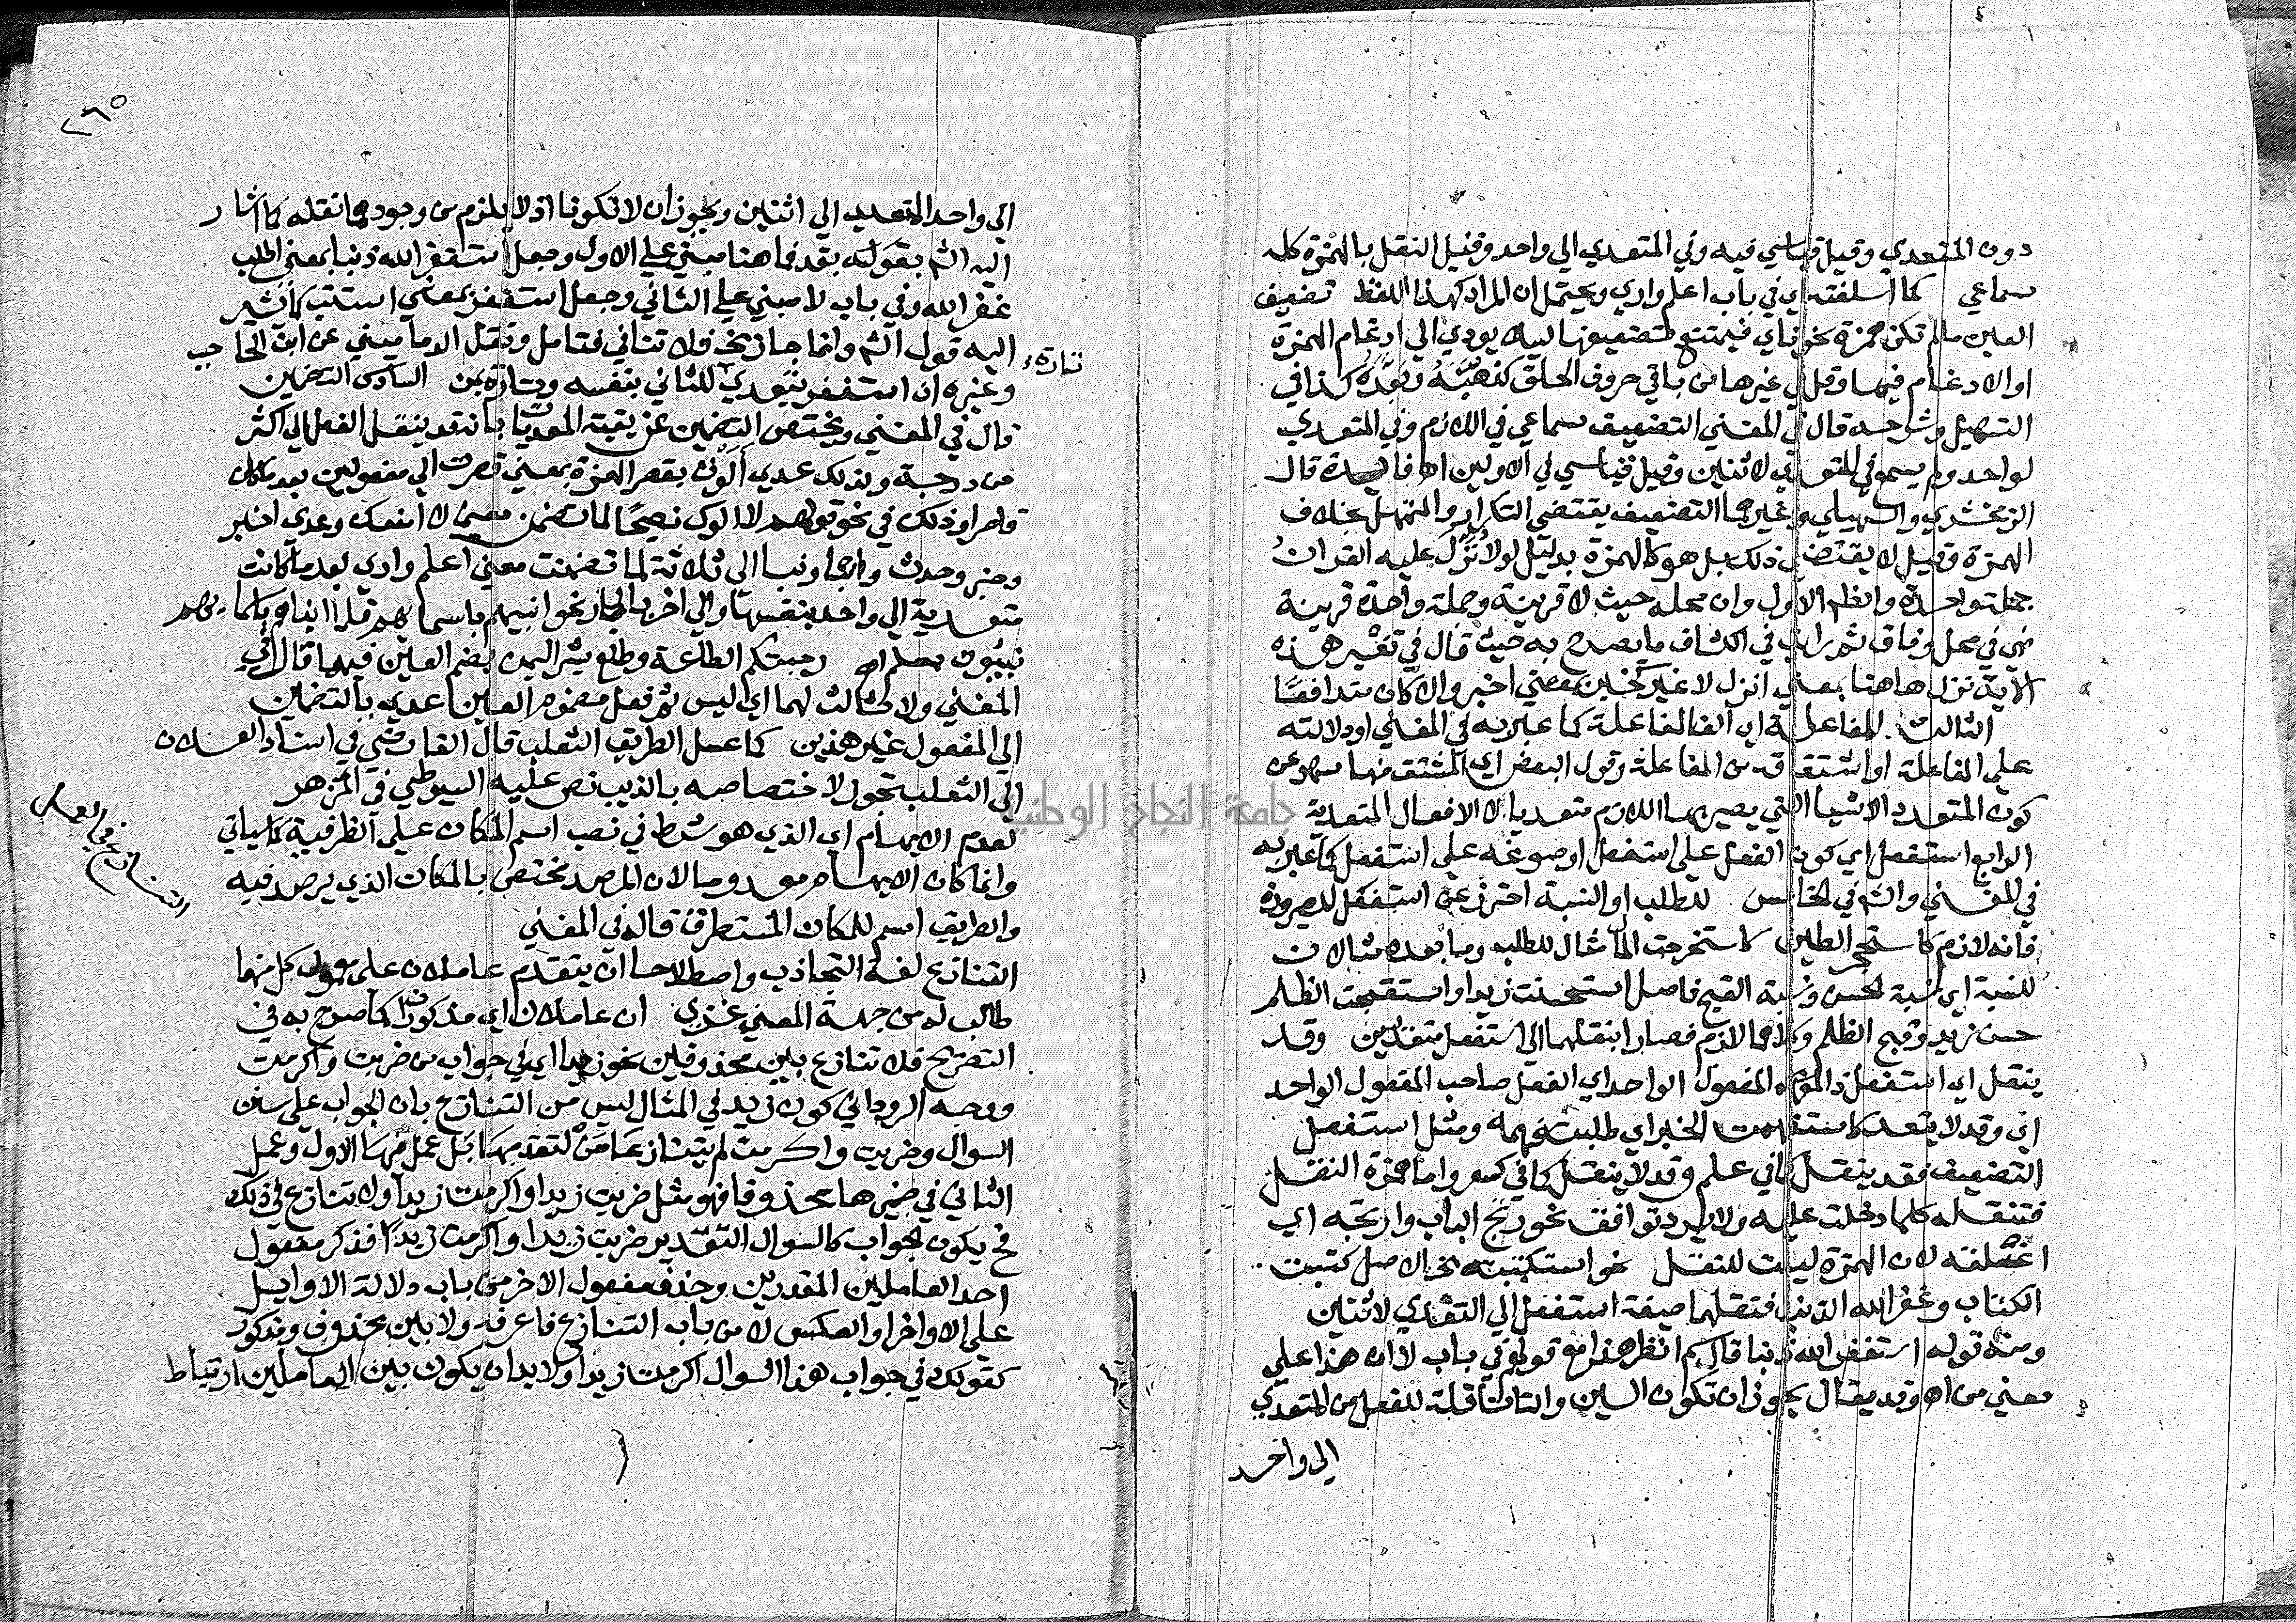 دون المتعدي وقيل قياسي فيه وفي المتعدي الي واحد وقيل النقل بالهمزة كله
سماعي كما اسلفته اي في باب اعلم واري ويحتمل ان المراد كهذا اللفظ تضعيف
العين مالم تكن همزة نحو ناي فيمتنع تضعيفها ليلا يودي الي ادغام الهمزة
او الادغام فيها وقل في غيرها من باقي حروف الحلق كذا في
التسهيل وشرحه قال في المغني التضعيف سماعي في اللازم وفي المتعدي
لواحد ولم يسمع في المتعدي لاثنين وقيل قياسي في الاولين اه فايدة قال
الزمخشري والسهيلي وغيرهما التضعيف يقتضي التكرار والتمهل بخلاف
الهمزة وقيل لا يقتضي ذلك بل هو كالهمزة بدليل لولا نزل عليه القران
جملة واحدة وانظم الاول وان محله حيث لا قرينة وجملة واحدة قرينة
فهي في محل وفاق ثم رايت في الكشاف ما يصرح به حيث قال في تفسير هذه
الاية نزل هاهنا بمعني انزل لا غير كخبر بمعني اخبر والا كان متدافعا
الثالث المفاعلة اي الف المفاعلة كما عبر به في المغني او دلالته
علي المفاعلة او اشتقاقه من المفاعلة وقول البعض اي المشتق منها سهو عن
كون المتعدد الاشيا التي يصير بها اللازم متعديا لا الافعال المتعدية
الرابع استفعل اي كون الفعل علي استفعل او صوغه علي استفعل كما عبر به
في المغني والشم في الخامس للطلب او النسبة احترز عن استفعل للصيرورة
فانه لازم كاستحجر الطين كاستخرجت المال مثال للطلب وما بعده مثالان
للنسبة اي نسبة الحسن ونسبة القبح فاصل استحسنت زيدا واستقبحت الظلم
حسن زيد وقبح الظلم وكلاهما لازم فصار ابنقلهما الي استفعل متعديين وقد
ينقل اي استفعل ذا المفعول الواحد اي الفعل صاحب المفعول الواحد
اي وقد لا يتعد كاستفهمت الخبر اي طلبت فهمه ومثل استفعل
التضعيف فقد ينقل كما في علم وقد لا ينقل كما في كسر واما همزة النقل
فتنقله كلما دخلت عليه ولا يرد توافق نحو رتج الباب وارتجه اي
اغلقه لان الهمزة ليست للنقل نحو استكتبته الاصل كتبت
الكتاب وغفر الله الذنب فنقلهما صيغة استفعل الي التعدي لاثنين
ومنه قوله استغفر الله ذنبا قال سم انظر هذا مع قولهم في باب لا ان هذا علي
معني من اه وقد يقال يجوز ان تكون السين والتا ناقلة للفعل من المتعدي
الي واحد
٢٦٥
الي واحد المتعدي الي اثنين ويجوز ان لا تكونا اذ لا يلزم من وجودهما نقله كما اشار
اليه الشم بقوله بقد فما هنا مبني علي الاول وجعل استغفر الله ذنبا بمعني اطلب
غفر الله وفي باب لا مبني علي الثاني وجعل استغفر بمعني استتب كما يشير
اليه قول الشم وانما جاز فلا تنافي فتامل ونقل الدماميني عن ابن الحاجب
وغيره ان استغفر يتعدي للثاني بنفسه وتارة بمن السادس التضمين
تارة
قال في المغني ويختص التضمين عن بقية المعديات بانه قد ينقل الفعل الي اكثر
من درجة ولذلك عدي الوت بقصر الهمزة بمعني قصرت الي مفعولين بعد ما كان
قاصرا وذلك في نحو قولهم لا الوك نصحا لما تضمن معني لا امنعك وعدي اخبر
وخبر وحدث وانبا ونبا الي ثلاثة لما تضمنت معني اعلم واري بعد ما كانت
متعدية الي واحد بنفسها والي اخر بالجار نحو انبيهم باسمايهم فلما انباهم باسمايهم
نبيوني بعلم اه رحبتكم الطاعة وطلع بشر اليمن بضم العين فيهما قال في
المغني ولا ثالث لهما اي ليس ثم فعل مضموم العين عدي بالتضمين
الي المفعول غير هذين كما عسل الطريق الثعلب قال القاضي في اسناد العسلان
الي الثعلب تجوز لاختصاصه بالذيب نص عليه السيوطي في المزهر
لعدم الابهام اي الذي هو شرط في نصب اسم المكان علي الظرفية كما سياتي
وانما كان الابهام معدوما لان المرصد مختص بالمكان الذي يرصد فيه
والطريق اسم للمكان المستطرق قاله في المغني
التنازع في العمل
التنازع لغة التجاذب واصطلاحا ان يتقدم عاملان علي معمول كل منهما
طالب له من جهة المعني عزي ان عاملان اي مذكوران كما صرح به في
التصريح فلا تنازع بين محذوفين نحو زيدا اي في جواب من ضربت واكرمت
ووجه الروداني كون زيد في المثال ليس من التنازع بان الجواب علي سنن
السوال وضربت واكرمت لم يتنازعا من لتقدمها بل عمل فيها الاول وعمل
الثاني في ضميرها محذوفا فهو مثل ضربت زيدا واكرمت زيدا ولا تنازع في ذلك
فح يكون الجواب كالسوال التقدير ضربت زيدا واكرمت زيدا فذكر مفعول
احد العاملين المقدرين وحذف مفعول الاخر من باب دلالة الاوايل
علي الاواخر او العكس لا من باب التنازع فاعرفه ولا بين محذوف ومذكور
كقولك في جواب هذا السوال اكرمت زيدا ولا بد ان يكون بين العاملين ارتباط
جامعة النجاح الوطنية